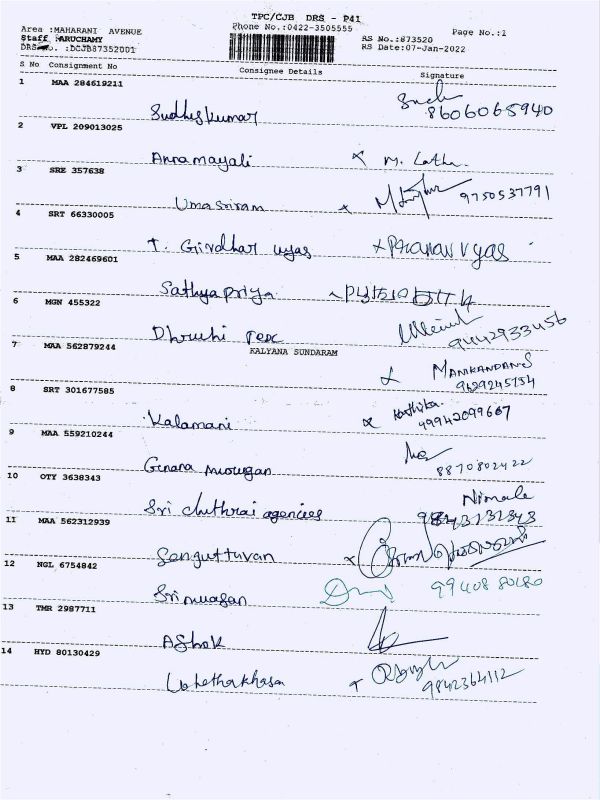 TPC/CJB DRS - P41
Area :MAHARANI AVENUE Phone No.:0422-3505555 Page No.:1
Staff :MARUCHAMY RS No.:873520
DRS No. :DCJB87352001 RS Date:07-Jan-2022
S No Consignment No Consignee Details Signature
1 MAA 284619211
Sudhiskumar 8606065940
2 VPL 209013025
Annamayali x M. Latha
3 SRE 357638
Umasriram x 9750537791
4 SRT 66330005
T. Girdhar uyas x Pranav vyas
5 MAA 282469601
Sathyapriya
6 MGN 455322
Dhruhi Tex 9442933456
7 MAA 562879244 KALYANA SUNDARAM
MANIKANDAN S
9629245154
8 SRT 301677585
Kalamani x Karthika
9 MAA 559210244
Gnana murugan 8870802422
10 OTY 3638343
Sri Chithrai agencies Nirmala
11 MAA 562312939
Senguttuvan x
12 NGL 6754842
Srimurgan 9940880480
13 TMR 2987711
AShok
14 HYD 80130429
9842364112